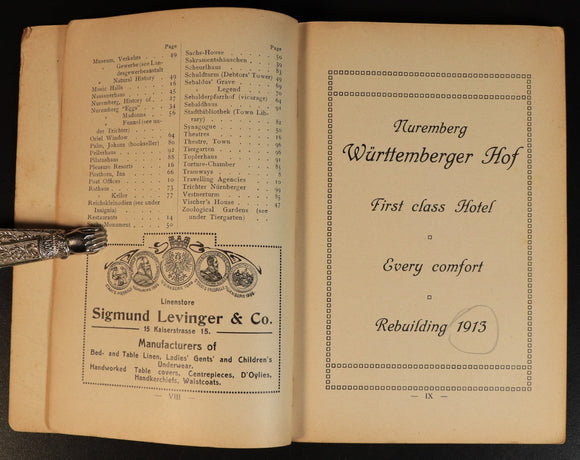 Page
Museum, Verkehrs 49
Gewerbe (see Landesgewerbeanstalt
Natural History 49
Music Halls 16
Nassauerhaus 45
Nuremberg, History of 27
Nuremberg "Eggs" 54
Madonna 56
Funnel (see under Trichter)
Oriel Window 64
Palm, Johann (bookseller) 80
Pellerhaus
Pilatushaus
Pleasure Resorts 16
Posthorn, Inn 66
Post Offices 10
Rathaus 73
Keller 77
Reichskleinodien (see under Insignia)
Restaurants 14
Monument 50
Page
Sachs-House 50
Sakramentshäuschen
Scheurlhaus
Schuldturm (Debtors' Tower)
Sebaldus' Grave
Legend
Sebalderpfarrhof (vicarage)
Sebaldhaus
Stadtbibliothek (Town Library)
Synagogue
Theatres 16
Theatre, Town
Tiergarten
Toplerhaus
Torture-Chamber
Tramways 8
Travelling Agencies 10
Trichter Nürnberger
Vestnerturm
Vischer's House
Zoological Gardens (see under Tiergarten)
Linenstore
Sigmund Levinger & Co.
15 Kaiserstrasse 15.
Manufacturers of
Bed- and Table Linen, Ladies' Gents' and Children's
Underwear.
Handworked Table covers, Centrepieces, D'Oylies,
Handkerchiefs, Waistcoats.
— VIII —
Nuremberg
Württemberger Hof
First class Hotel
Every comfort
Rebuilding 1913
— IX —